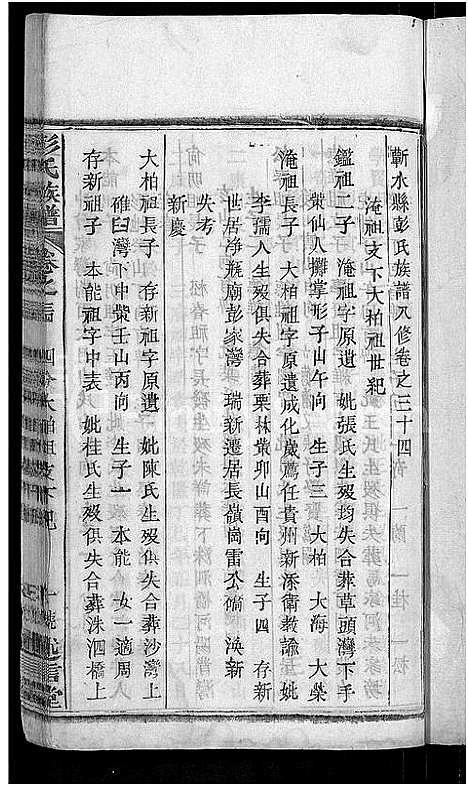 蘄水縣彭氏族譜八修卷之三十四
淹祖支下大柏祖世紀
鑑祖二子 淹祖字原遺 妣張氏生歿均失合葬草頭灣下手
棠仙人攤掌形子山午向 生子三 大柏 大海 大榮
淹祖長子 大柏祖字原遺成化歲薦任貴州新添衛教諭妣
李孺人生歿俱失合葬栗林棠卯山酉向 生子四 存新
世居净瓶廟彭家灣 瑞新遷居長嶺崗雷不備 渙新
失考
新慶
大柏祖長子 存新祖字原遺 妣陳氏生歿俱失合葬沙灣上
碓臼灣下中營壬山丙向 生子一 本能 女一適周
存新祖子 本能祖字中表 妣桂氏生歿俱失合葬洙泗橋上
彭氏族譜 卷之三十四 大柏祖支下紀 一 述信堂